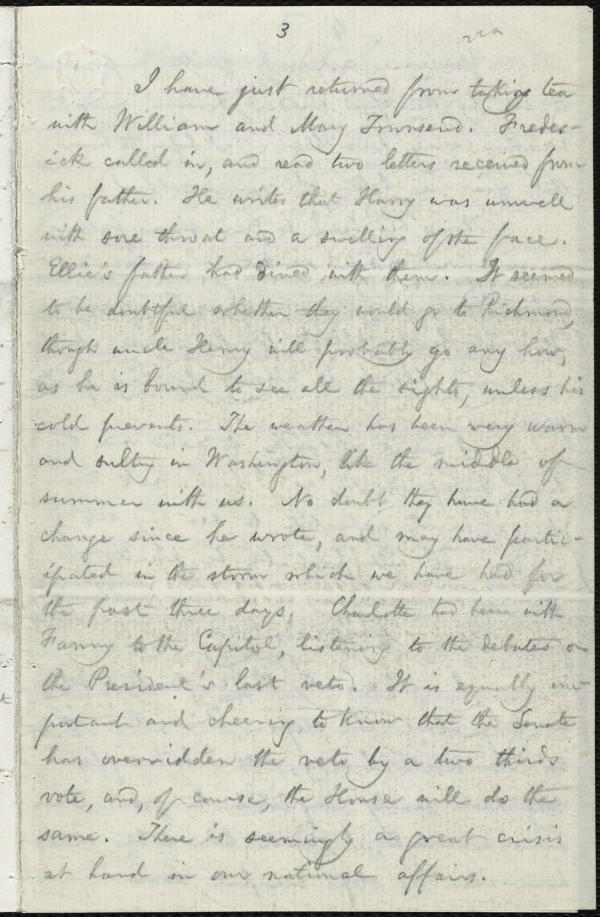 3
I have just returned from taking tea
with William and Mary Townsend. Freder-
ick called in, and read two letters received from
his father. He writes that Harry was unwell
with sore throat and a swelling of the face.
Ellie's father had dined with them. It seemed
to be doubtful whether they would go to Richmond,
though uncle Henry will probably go any how,
as he is bound to see all the sights, unless his
cold prevents. The weather has been very warm
and sultry in Washington, like the middle of
summer with us. No doubt they have had a
change since he wrote, and may have partic-
ipated in the storm which we have had for
the past three days. Charlotte had been with
Fanny to the Capitol, listening to the debates on
the President's last veto. It is equally im-
portant and cheering to know that the Senate
has overridden the veto by a two thirds
vote, and, of course, the House will do the
same. There is seemingly a great crisis
at hand in our national affairs.